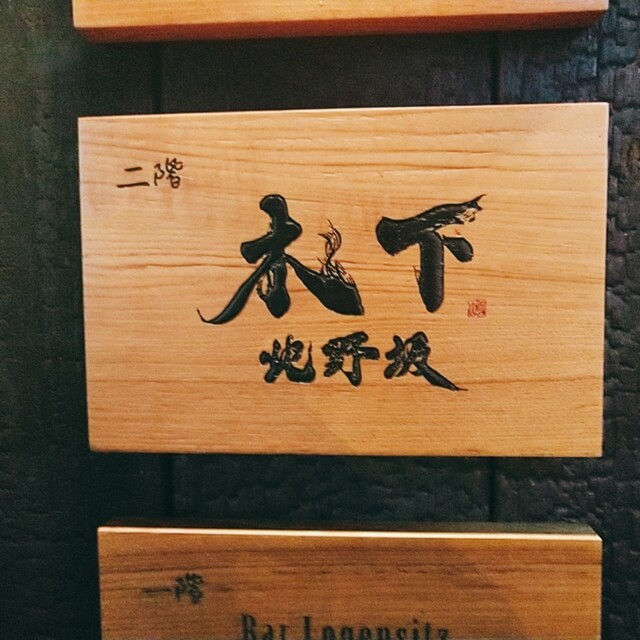 二階
木下
北野坂
一階
Bar Logensitz